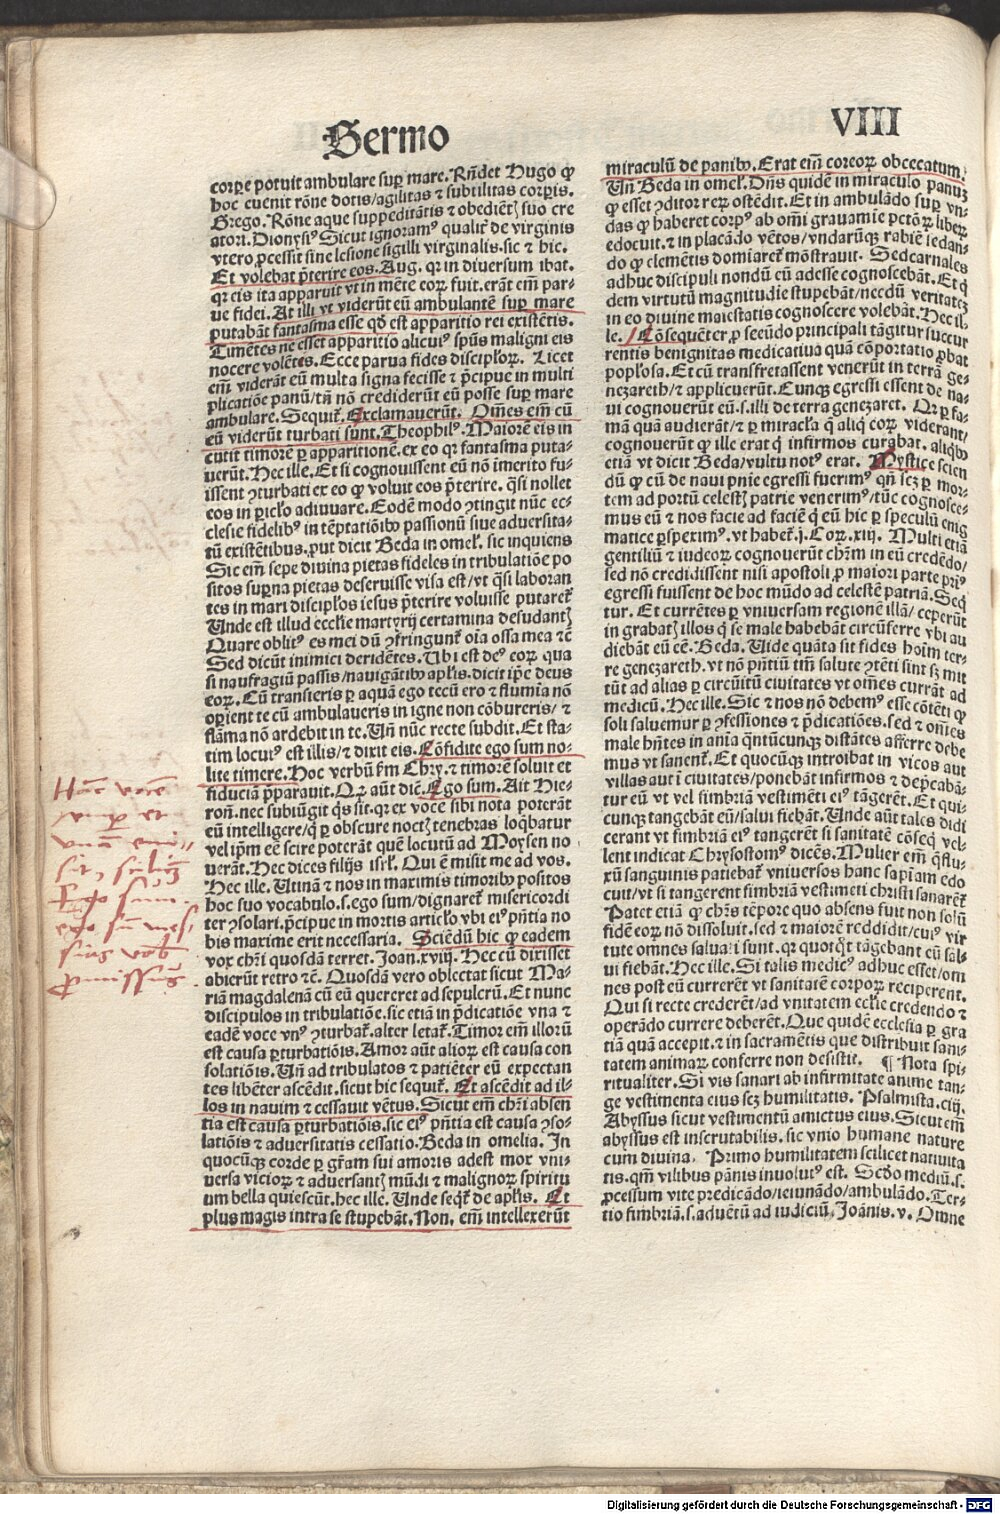 Sermo
VIII
corpe potuit ambulare sup mare. Rñdet Hugo ꝙ
hoc euenit rōne dotis/agilitas ⁊ subtilitas corpis.
Grego. Rōne aque suppeditātis ⁊ obediētꝭ suo cre
atori. Dionysiꝰ Sicut ignoramꝰ qualiť de virginis
vtero ꝓcessit sine lesione sigilli virginalis. sic ⁊ hic.
Et volebat p̄terire eos. Aug. qꝛ in diuersum ibat.
qꝛ eis ita apparuit vt in mēte eoꝝ fuit. erāt em̄ par-
ue fidei. At illi vt viderūt eū ambulantē sup mare
putabāt fantasma esse qđ est apparitio rei existētis.
Timētes ne esset apparitio alicuiꝰ spūs maligni eis
nocere volētis. Ecce parua fides discipłoꝝ. Licet
em̄ viderāt eū multa signa fecisse ⁊ p̄cipue in multi
plicatiōe panū/tn̄ nō crediderūt eū posse sup mare
ambulare. Sequiť. Exclamauerūt. Om̄es em̄ cū
eū viderūt turbati sunt. Theophilꝰ. Maiorē eis in
cutit timorē ꝑ apparitionē. ex eo qꝛ fantasma puta-
uerūt. Hec ille. Et si cognouissent eū nō īmerito fu-
issent ꝯturbati ex eo ꝙ voluit eos p̄terire. q̄si nollet
eos in piclo adiuuare. Eodē modo ꝯtingit nūc ec-
clesie fidelibꝰ in tēptatiōibꝰ passionū siue aduersita-
tū existētibus. put dicit Beda in omel. sic inquiens
Sic em̄ sepe diuina pietas fideles in tribulatiōe po
sitos supna pietas deseruisse visa est/vt q̄si laboran
tes in mari discipłos iesus p̄terire voluisse putareť
Unde est illud eccłie martyrij certamina desudantꝭ
Quare oblitꝰ es mei dū ꝯfringunť oīa ossa mea ⁊c̄
Sed dicūt inimici deridētes. Ubi est deꝰ eoꝝ qua
si naufragiū passis/nauigātibꝰ aplis. dicit ip̄e deus
eoꝝ. Cū transieris ꝑ aquā ego tecū ero ⁊ flumia nō
opient te cū ambulaueris in igne non cōbureris/ ⁊
flāma nō ardebit in te. Un̄ nūc recte subdit. Et sta-
tim locutꝰ est illis/⁊ dixit eis. Cōfidite ego sum no-
lite timere. Hoc verbū fm Chry. ⁊ timorē soluit et
fiduciā p̄parauit. Qꝛ aūt diē. Ego sum. Ait Hie-
roñ. nec subiūgit q̇s sit. qꝛ ex voce sibi nota poterāt
eū intelligere/q̇ ꝑ obscure noctꝭ tenebras loq̄batur
vel ipm̄ eē scire poterāt quē locutū ad Moysen no
uerāt. Hec dices filijs isrl. Qui ē misit me ad vos.
Hec ille. Utinā ⁊ nos in maximis timoribꝰ positos
hoc suo vocabulo. s. ego sum/dignareť misericordi
ter ꝯsolari. p̄cipue in mortis articło vbi eiꝰ pn̄tia no
bis maxime erit necessaria. Sciēdū hic ꝙ eadem
vox chr̄i quosdā terret. Joan. xviij. Hec cū dixisset
abierūt retro ⁊c̄. Quosdā vero oblectat sicut Ma-
riā magdalenā cū eū quereret ad sepulcrū. Et nunc
discipulos in tribulatiōe. sic etiā in p̄dicatiōe vna ⁊
eadē voce vnꝰ ꝯturbať. alter letať. Timor em̄ illorū
est causa ꝑturbatiōis. Amor aūt alioꝝ est causa con
solatiōis. Un̄ ad tribulatos ⁊ patiēter eū expectan
tes libēter ascēdit. sicut hic sequiť. Et ascēdit ad il-
los in nauim ⁊ cessauit vētus. Sicut em̄ chr̄i absen
tia est causa ꝑturbatiōis. sic eiꝰ pn̄tia est causa ꝯso-
latiōis ⁊ aduersitatis cessatio. Beda in omelia. In
quocūqꝫ corde ꝑ gr̄am sui amoris adest mox vni-
uersa vicioꝝ ⁊ aduersantꝭ mūdi ⁊ malignoꝝ spiritu
um bella quiescūt. hec ille. Unde seq̇ť de aplis. Et
plus magis intra se stupebāt. Non. em̄ intellexerūt
miraculū de panibꝰ. Erat em̄ cor eoꝝ obcecatum.
Un̄ Beda in omel. Dn̄s quidē in miraculo panuꝫ
ꝙ esset ꝯditor reꝝ ostēdit. Et in ambulādo sup vn-
das ꝙ haberet corpꝰ ab om̄i grauamie pctōꝝ liberꝫ
edocuit. ⁊ in placādo vētos/vndarūqꝫ rabiē sedan-
do ꝙ elemētis domiareť mōstrauit. Sed carnales
adhuc discipuli nondū eū adesse cognoscebāt. Et q̇
dem virtutū magnitudiē stupebāt/necdū veritateꝫ
in eo diuine maiestatis cognoscere volebāt. Hec il-
le. Cōsequēter ꝓ secūdo principali tāgitur succur
rentis benignitas medicatiua quā cōportatio ꝓbat
popłosa. Et cū transfretassent venerūt in terrā ge-
nezareth/⁊ applicuerūt. Cunqꝫ egressi essent de na-
ui cognouerūt eū. s. illi de terra genezaret. Qꝛ ꝑ fa-
mā quā audierāt/⁊ ꝑ miracła q̄ aliq̇ coꝝ viderant/
cognouerūt ꝙ ille erat q̇ infirmos curabat. aliqbꝰ
etiā vt dicit Beda/vultu notꝰ erat. Mystice scien
dū ꝙ cū de naui pn̄ie egressi fuerimꝰ qn̄ scꝫ ꝑ mor-
tem ad portū celestꝭ patrie venerimꝰ/tūc cognosce-
mus eū ⁊ nos facie ad faciē q̇ eū hic ꝑ speculū enig
matice ꝑspeximꝰ. vt habeť. j. Coꝝ. xiij. Multi etiā
gentiliū ⁊ iudeoꝝ cognouerūt chr̄m in eū credēdo/
sed nō credidissent nisi apostoli ꝓ maiori parte priꝰ
egressi fuissent de hoc mūdo ad celestē patriā. Seq̇
tur. Et currētes ꝑ vniuersam regionē illā/ ceperūt
in grabatꝭ illos q̇ se male habebāt circūferre vbi au
diebāt eū eē. Beda. Uide quāta sit fides hoīm ter-
re genezareth. vt nō pn̄tiū tm̄ salute ꝯtēti sint sꝫ mit
tūt ad alias ꝑ circūitū ciuitates vt om̄es currāt ad
medicū. Hec ille. Sic ⁊ nos nō debemꝰ esse cōtēti ꝙ
soli saluemur ꝑ ꝯfessiones ⁊ p̄dicatiōes. sed ⁊ om̄es
male hn̄tes in aīa q̄ntūcunqꝫ distātes afferre debe
mus vt sanenť. Et quocūqꝫ introibat in vicos aut
villas aut ī ciuitates/ponebāt infirmos ⁊ dep̄cabā-
tur eū vt vel fimbriā vestimēti eiꝰ tāgerēt. Et qui-
cunqꝫ tangebāt eū/salui fiebāt. Unde aūt tales didi
cerant vt fimbriā eiꝰ tangerēt si sanitatē cōseq̇ vel-
lent indicat Chrysostomꝰ dicēs. Mulier em̄ q̄ flu-
xū sanguinis patiebať vniuersos hanc sapiam edo
cuit/vt si tangerent fimbriā vestimēti christi sanarēť
Patet etiā ꝙ chr̄s tēpore quo absens fuit non solū
fidē eoꝝ nō dissoluit. sed ⁊ maiorē reddidit/cuiꝰ vir
tute omnes saluati sunt. qꝛ quotq̇t tāgebant eū sal-
ui fiebāt. Hec ille. Si talis medicꝰ adhuc esset/om
nes post eū currerēt vt sanitatē corpoꝝ reciperent.
Qui si recte crederēt/ad vnitatem eccłie credendo ⁊
operādo currere deberēt. Que quidē ecclesia ꝑ gra
tiā quā accepit. ⁊ in sacramētis que distribuit sani-
tatem animaꝝ conferre non desistit. ¶ Nota spi-
ritualiter. Si vis sanari ab infirmitate anime tan-
ge vestimenta eius scꝫ humilitatis. Psalmista. ciij.
Abyssus sicut vestimentū amictus eius. Sicut em̄
abyssus est inscrutabilis. sic vnio humane nature
cum diuina. Primo humilitatem scilicet natiuita
tis. qm̄ vilibus pānis inuolutꝰ est. Scd̄o mediū. s.
ꝓcessum vite predicādo/ieiunādo/ambulādo. Ter-
tio fimbriā. s. aduētū ad iudiciū. Joānis. v. Omne
Hāc vocē
vnā
sit, scilicꝫ
Ego sum
ego sū mes-
sias vob̄
ꝓmissus.
Digitalisierung gefördert durch die Deutsche Forschungsgemeinschaft - DFG